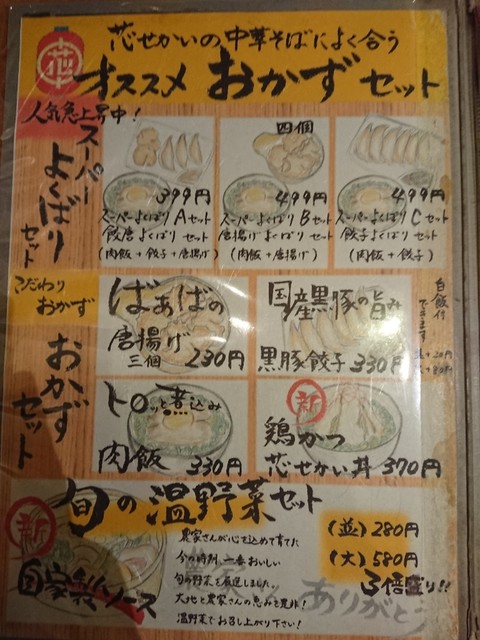 芯せかいの中華そばによく合う
オススメ おかず セット
人気急上昇中!
スーパー
よくばり
セット
399円
スーパーよくばり Aセット
餃唐よくばり セット
(肉飯+餃子+唐揚げ)
四個
499円
スーパーよくばり Bセット
唐揚げよくばり セット
(肉飯+唐揚げ)
499円
スーパーよくばり Cセット
餃子よくばり セット
(肉飯+餃子)
こだわり
おかず
おかず
セット
ばあばの
唐揚げ
三個 230円
国産黒豚の旨み
黒豚餃子 330円
白飯付
できます
トロッと煮込み
肉飯 330円
新
鶏かつ
芯せかい丼 370円
旬の温野菜セット
新
自家製ソース
農家さんが心を込めて育てた
今の時期、一番おいしい
旬の野菜を厳選しました。
大地と農家さんの恵みを是非!
温野菜でお召し上がり下さい!
(並)280円
(大)580円
3倍盛り!!